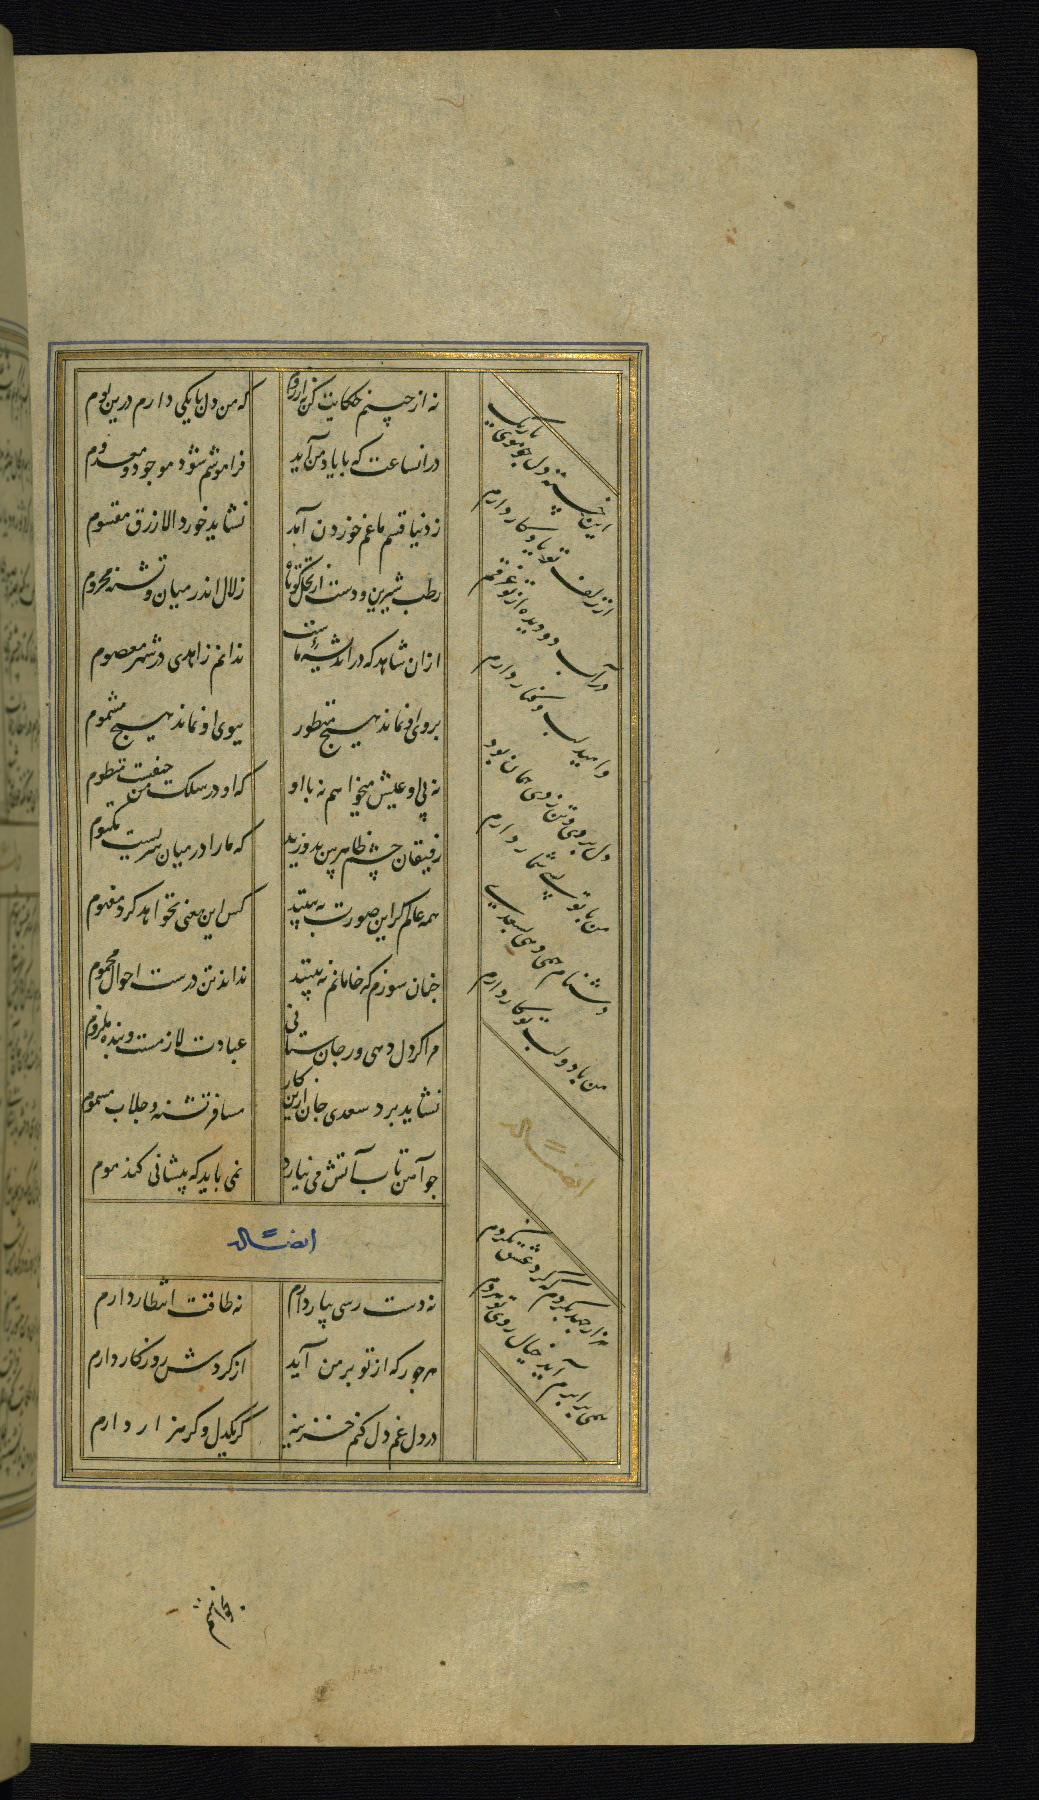 نه از چینم حکایت کن نه از روم که من دل با یکی دارم درین بوم
در انساعت که با یاد من آید فراموشم شود موجود و معدوم
ز دنیا قسم ما غم خوردن آمد نشاید خورد الا رزق مقسوم
رطب شیرین و دست از نخل کوتاه زلال اندر میان و تشنه محروم
ازان شاهد که در اندیشهٔ ماست ندانم زاهدی در شهر معصوم
بروی او نماند هیچ منظور ببوی او نماند هیچ مشموم
نه بی او عیش میخواهم نه با او که او در سلک من حیفست منظوم
رفیقان چشم ظاهربین بدوزید که ما را در میان سریست مکتوم
همه عالم گر این صورت ببینند کس این معنی نخواهد کرد مفهوم
چنان سوزم که خامانم نه بینند نداند تن درست احوال محموم
مرا گر دل دهی ور جان ستانی عبادت لازمست و بنده ملزوم
نشاید برد سعدی جان ازین کار مسافر تشنه و جلاب مسموم
چو آهن تاب آتش می نیارد نمی باید که پیشانی کند موم
ایضا له
نه دست رسی بیار دارم نه طاقت انتظار دارم
هر جور که از تو بر من آید از گردش روزگار دارم
در دل غم دل کنم خزینه گر یکدل و گر هزار دارم
این خسته دل چو موی باریک
از زلف تو یادگار دارم
در آب دو دیده از تو غرقم
و امید لب و کنار دارم
دل بردی و تن زدی همان بود
من با تو بسی شمار دارم
دشنام همی دهی بسعدی
من با دو لب تو کار دارم
ایضا له
هزار جهد بکردم که گرد عشق نگردم
همی برابرم آید خیال روی تو هر دم